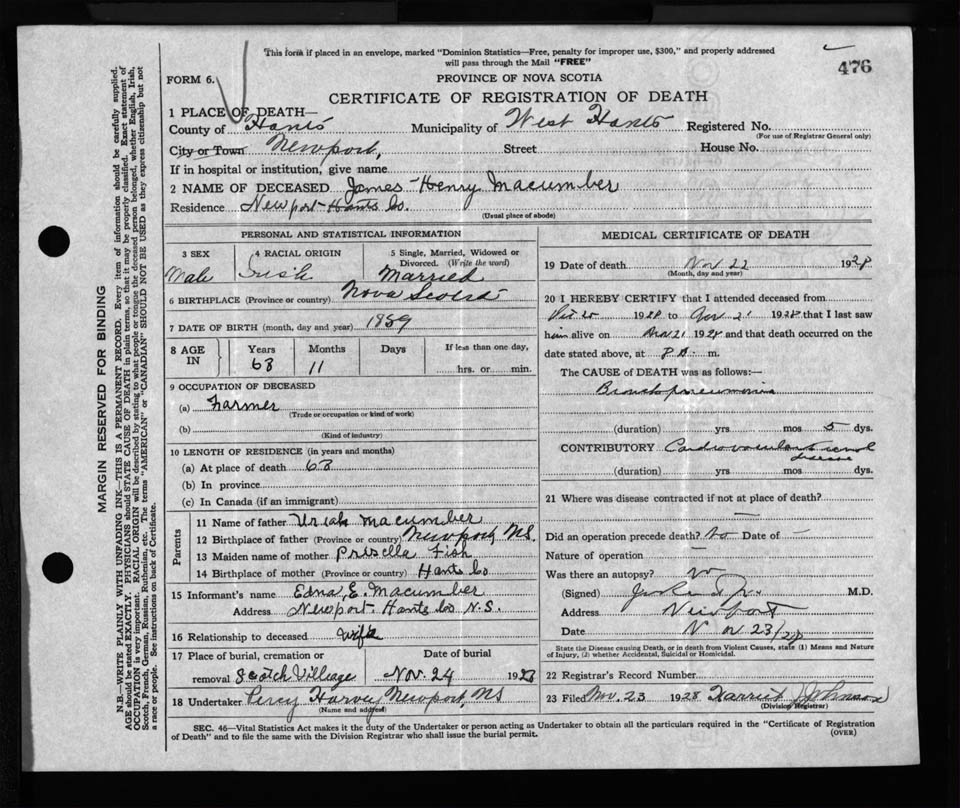 This form if placed in an envelope, marked "Dominion Statistics—Free, penalty for improper use, $300," and properly addressed
will pass through the Mail "FREE"
476
FORM 6.
PROVINCE OF NOVA SCOTIA
CERTIFICATE OF REGISTRATION OF DEATH
1 PLACE OF DEATH—
County of Hants Municipality of West Hants Registered No.
(For use of Registrar General only)
City or Town Newport, Street House No.
If in hospital or institution, give name
2 NAME OF DECEASED James Henry Macumber
Residence Newport Hants Co.
(Usual place of abode)
PERSONAL AND STATISTICAL INFORMATION
3 SEX 4 RACIAL ORIGIN 5 Single, Married, Widowed or Divorced. (Write the word)
Male Irish Married
6 BIRTHPLACE (Province or country) Nova Scotia
7 DATE OF BIRTH (month, day and year) 1859
8 AGE IN Years Months Days If less than one day,
68 11 hrs. or min.
9 OCCUPATION OF DECEASED
(a) Farmer
(Trade or occupation or kind of work)
(b)
(Kind of industry)
10 LENGTH OF RESIDENCE (in years and months)
(a) At place of death 68
(b) In province
(c) In Canada (if an immigrant)
Parents
11 Name of father Uriah Macumber
12 Birthplace of father (Province or country) Newport, N.S.
13 Maiden name of mother Prisella Fish
14 Birthplace of mother (Province or country) Hants Co
15 Informant's name Edna E. Macumber
Address Newport Hants Co N.S.
16 Relationship to deceased Wife
17 Place of burial, cremation or Date of burial
removal Scotch Village Nov. 24 1928
18 Undertaker Percy Harvey Newport, NS
(Name and address)
MEDICAL CERTIFICATE OF DEATH
19 Date of death Nov 22 1928
(Month, day and year)
20 I HEREBY CERTIFY that I attended deceased from
1928 to Nov 21 1928 that I last saw
him alive on Nov 21 1928 and that death occurred on the
date stated above, at m.
The CAUSE of DEATH was as follows:—
Bronchopneumonia
(duration) yrs mos 5 dys.
CONTRIBUTORY Cardiovascular renal
disease
(duration) yrs mos dys.
21 Where was disease contracted if not at place of death?
—
Did an operation precede death? No Date of —
Nature of operation —
Was there an autopsy? No
(Signed) M.D.
Address Newport
Date Nov 23/28
State the Disease causing Death, or in death from Violent Causes, state (1) Means and Nature
of Injury, (2) whether Accidental, Suicidal or Homicidal.
22 Registrar's Record Number
23 Filed Nov. 23 1928 Harriet Johnson
(Division Registrar)
SEC. 46—Vital Statistics Act makes it the duty of the Undertaker or person acting as Undertaker to obtain all the particulars required in the "Certificate of Registration
of Death" and to file the same with the Division Registrar who shall issue the burial permit.
(OVER)
MARGIN RESERVED FOR BINDING
N.B.—WRITE PLAINLY WITH UNFADING INK—THIS IS A PERMANENT RECORD. Every item of information should be carefully supplied.
AGE should be stated EXACTLY. PHYSICIANS should STATE CAUSE OF DEATH in plain terms, so that it may be properly classified. Exact statement of
OCCUPATION is very important. RACIAL ORIGIN will be described by stating to what people or tongue the deceased person belonged, whether English, Irish,
Scotch, French, German, Russian, Ruthenian, etc. The terms "AMERICAN" or "CANADIAN" SHOULD NOT BE USED as they express citizenship but not
a race or people. See instructions on back of Certificate.